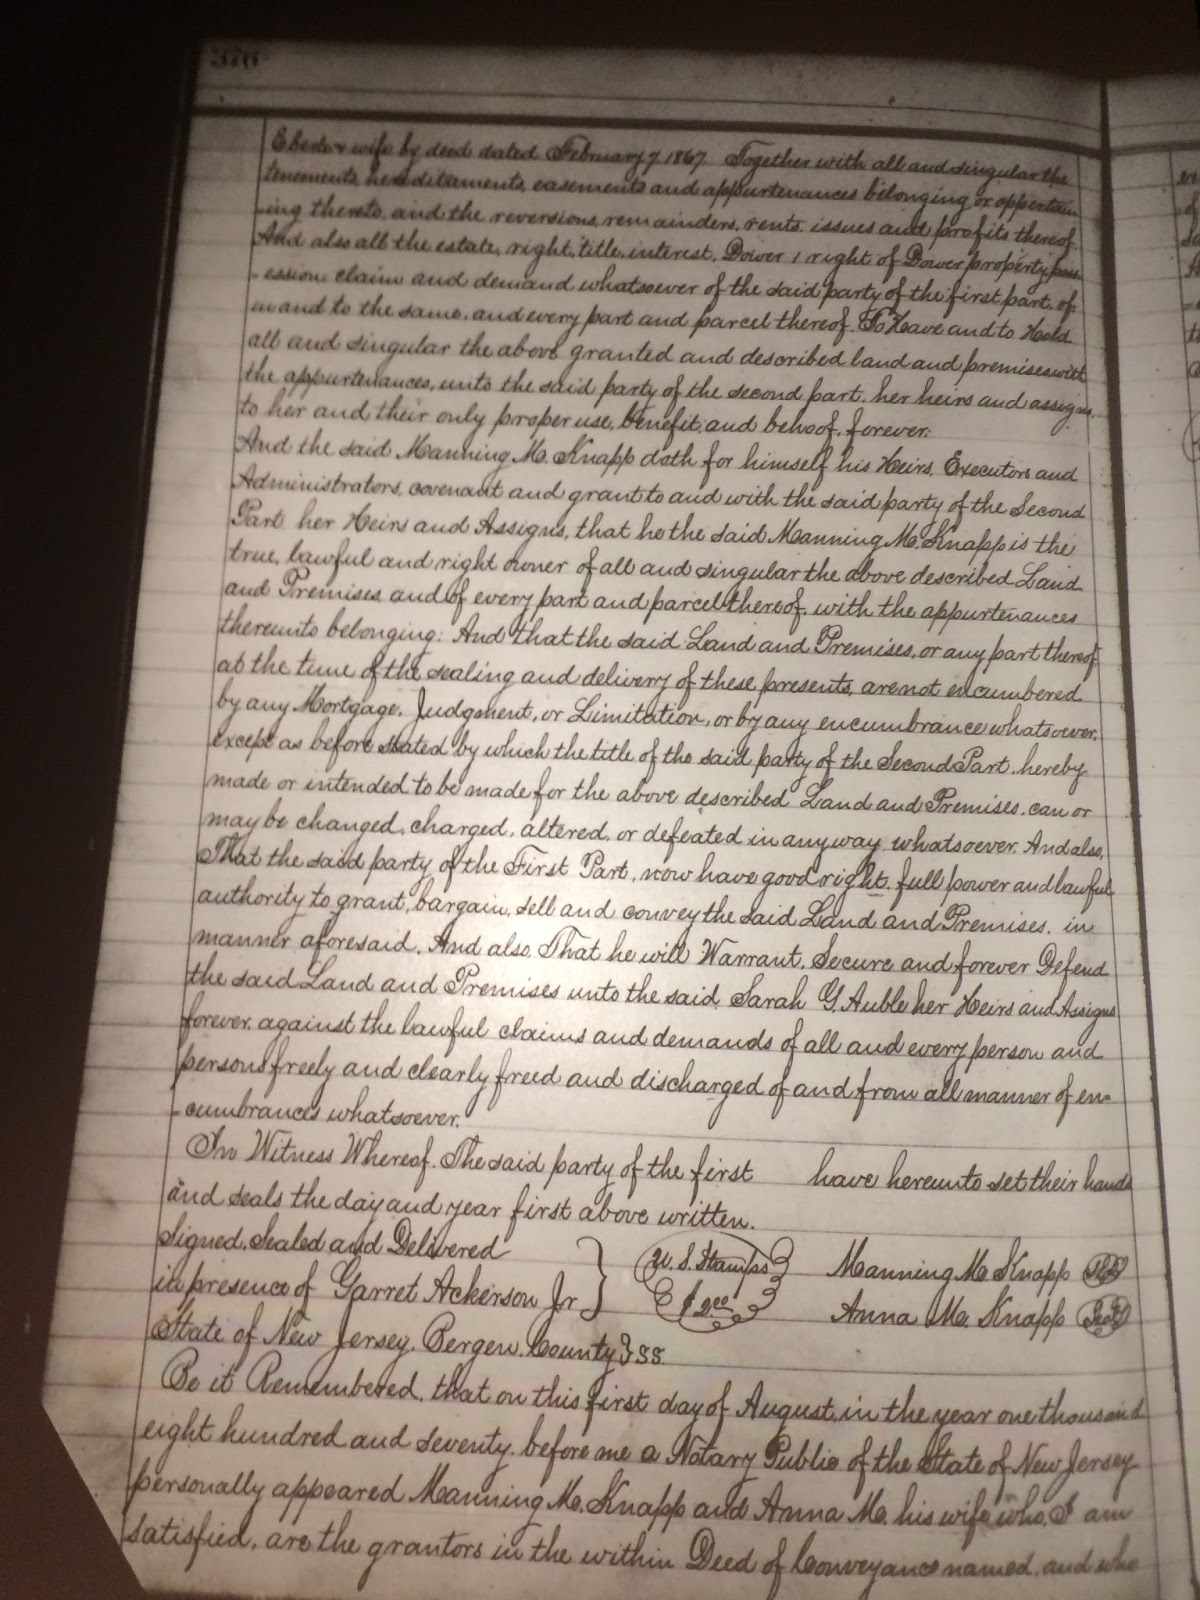 376
Ebester & wife by deed dated February 7 1867 Together with all and singular the
tenements, hereditaments, easements and appurtenances belonging or appertain
-ing thereto, and the reversions, remainders, rents, issues and profits thereof.
And also all the estate, right, title, interest, Dower, right of Dower property, poss
-ession claim and demand whatsoever of the said party of the first part, of,
in and to the same, and every part and parcel thereof. To Have and to Hold
all and singular the above granted and described land and premises with
the appurtenances, unto the said party of the second part, her heirs and assigns,
to her and their only proper use, benefit, and behoof, forever:
And the said Manning M. Knapp doth for himself his Heirs, Executors and
Administrators, covenant and grant to and with the said party of the Second
Part her Heirs and Assigns, that he the said Manning M. Knapp is the
true, lawful and right owner of all and singular the above described Land
and Premises and of every part and parcel thereof, with the appurtenances
thereunto belonging: And that the said Land and Premises, or any part thereof
at the time of the sealing and delivery of these presents, are not encumbered
by any Mortgage, Judgment, or Limitation, or by any encumbrance whatsoever,
except as before stated by which the title of the said party of the Second Part, hereby
made or intended to be made for the above described Land and Premises, can or
may be changed, charged, altered, or defeated in any way whatsoever. And also,
That the said party of the First Part, now have good right, full power and lawful
authority to grant, bargain, sell and convey the said Land and Premises, in
manner aforesaid. And also, That he will Warrant, Secure and forever Defend
the said Land and Premises unto the said Sarah G. Auble her Heirs and Assigns
forever, against the lawful claims and demands of all and every person and
persons freely and clearly freed and discharged of and from all manner of en-
-cumbrances whatsoever.
In Witness Whereof. The said party of the first have hereunto set their hands
and seals the day and year first above written.
Signed, Sealed and Delivered
in presence of Garret Ackerson Jr } U. S. Stamps $2.00 Manning M. Knapp Seal
Anna M. Knapp Seal
State of New Jersey, Bergen County } SS.
Be it Remembered, that on this first day of August, in the year one thousand
eight hundred and seventy, before me a Notary Public of the State of New Jersey
personally appeared Manning M. Knapp and Anna M. his wife who, I am
satisfied, are the grantors in the within Deed of Conveyance named, and who